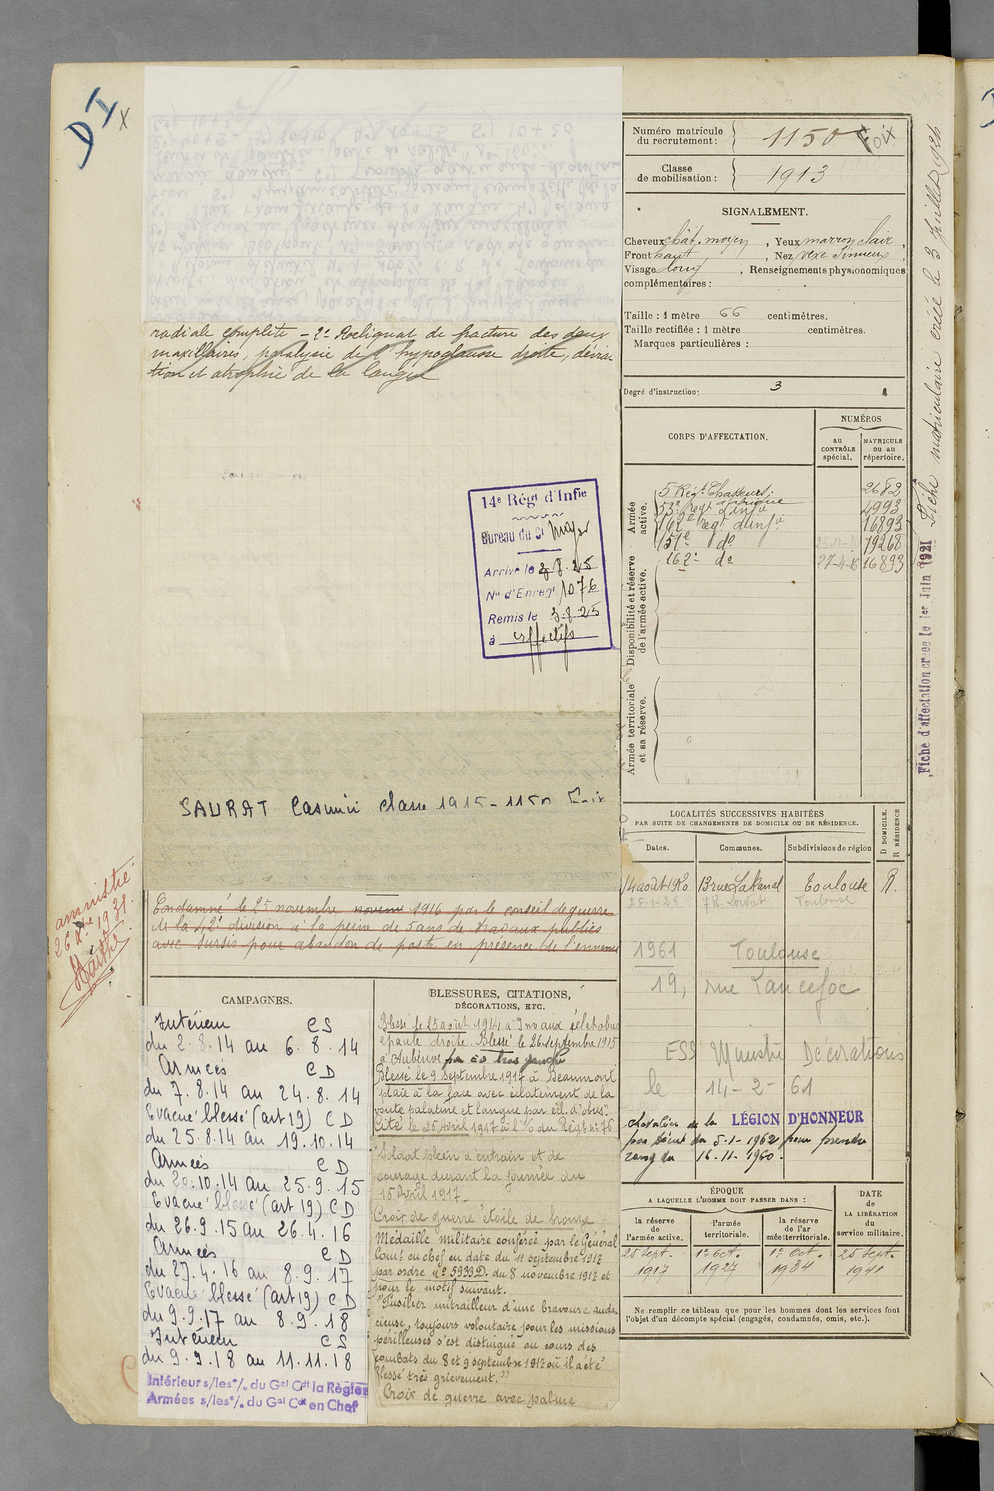 DI
X
radiale complète – 2° Reliquat de fracture des deux
maxillaires, paralysie de l'hypoglosse droite, dévia
tion et atrophie de la langue
14e Régt d'Infie
Bureau du St Major
Arrivé le 3.8.25
No d'Enregt 1076
Remis le 3-8-25
à effectifs
SAURAT Casimir classe 1915 - 1150 Foix
Condamné le 25 novembre 1916 par le conseil de guerre
de la 42e division à la peine de 5 ans de travaux publics
avec sursis pour abandon de poste en présence de l'ennemi
amnistié
1931
CAMPAGNES.
Intérieur CS
du 2.8.14 au 6.8.14
Armées CD
du 7.8.14 au 24.8.14
Evacué blessé (art 19) CD
du 25.8.14 au 19.10.14
Armées CD
du 20.10.14 au 25.9.15
Evacué blessé (art 19) CD
du 26.9.15 au 26.4.16
Armées CD
du 27.4.16 au 8.9.17
Evacué blessé (art 19) CD
du 9.9.17 au 8.9.18
Intérieur CS
du 9.9.18 au 11.11.18
Intérieur s/les o/. du Gal Cdt la Région
Armées s/les o/. du Gal Cdt en Chef
BLESSURES, CITATIONS,
DÉCORATIONS, ETC.
Blessé le 25 août 1914 à éclat obus
épaule droite. Blessé le 26 septembre 1915
à Auberive bras gauche
Blessé le 9 Septembre 1917 à Beaumont
plaie à la face avec éclatement de la
voute palatine et langue par éél. d'obus.
Cité le 25 Avril 1917 à l'O. du Régt n° 76
"Soldat plein d'entrain et de
courage durant la journée du
15 Avril 1917_
Croix de guerre étoile de bronze.
Médaille militaire conférée par le Général
Comt en chef en date du 11 septembre 1917
par ordre n° 5933 D. du 8 novembre 1917 et
pour le motif suivant.
"Fusilier mitrailleur d'une bravoure auda
cieuse, toujours volontaire pour les missions
périlleuses s'est distingué au cours des
combats du 8 et 9 septembre 1917 où il a été
blessé très grièvement."
Croix de guerre avec palme
Numéro matricule
du recrutement : 1150 Foix
Classe
de mobilisation : 1913
SIGNALEMENT.
Cheveux chât. moyen, Yeux marron clair,
Front haut, Nez vexe sinueux,
Visage long, Renseignements physionomiques
complémentaires :
Taille : 1 mètre 66 centimètres.
Taille rectifiée : 1 mètre centimètres.
Marques particulières :
Degré d'instruction: 3
CORPS D'AFFECTATION.
NUMÉROS
au
CONTRÔLE
spécial.
MATRICULE
ou au
répertoire.
Armée
active.
5 Régt Chasseurs d'Afrique 2682
53e regt d'infie 4993
162e regt d'infie 16893
151e do 79268
162e do 27-4-16 16893
Disponibilité et réserve
de l'armée active.
Armée territoriale
et sa réserve.
LOCALITÉS SUCCESSIVES HABITÉES
PAR SUITE DE CHANGEMENTS DE DOMICILE OU DE RÉSIDENCE.
Dates.
Communes.
Subdivisions de région
D DOMICILE.
R RÉSIDENCE
14 août 1920 13 rue Lakanal Toulouse R.
Toulouse
1961 Toulouse
19, rue Lancefoc
ESS Ministre Décorations
le 14-2-61
chevalier de la LÉGION D'HONNEUR
par décret du 5-1-1962 pour prendre
rang du 16-11-1960.
ÉPOQUE
A LAQUELLE L'HOMME DOIT PASSER DANS :
la réserve
de
l'armée active.
l'armée
territoriale.
la réserve
de l'ar
mée territoriale.
DATE
de
LA LIBÉRATION
du
service militaire.
25 Sept. 1er Oct. 1er Oct. 25 Sept.
1917 1927 1934 1941
Ne remplir ce tableau que pour les hommes dont les services font
l'objet d'un décompte spécial (engagés, condamnés, omis, etc.).
Fiche d'affectation créée le 1er Juin 1921
Fiche matriculaire créée le 3 Juillet 1924